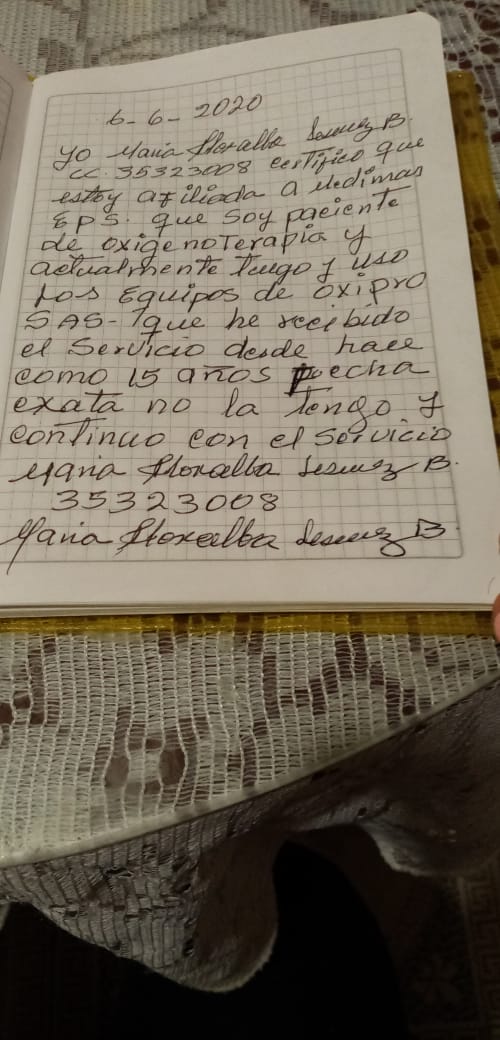 6-6-2020
Yo Maria Floralba B.
cc. 35323008 certifico que
estoy afiliada a Medimas
EPS. que soy paciente
de oxigenoTerapia y
actualmente tengo y uso
los Equipos de oxipro
SAS- que he recibido
el Servicio desde hace
como 15 años Fecha
exata no la tengo y
continuo con el servicio
Maria Floralba B.
35323008
Maria Floralba B.